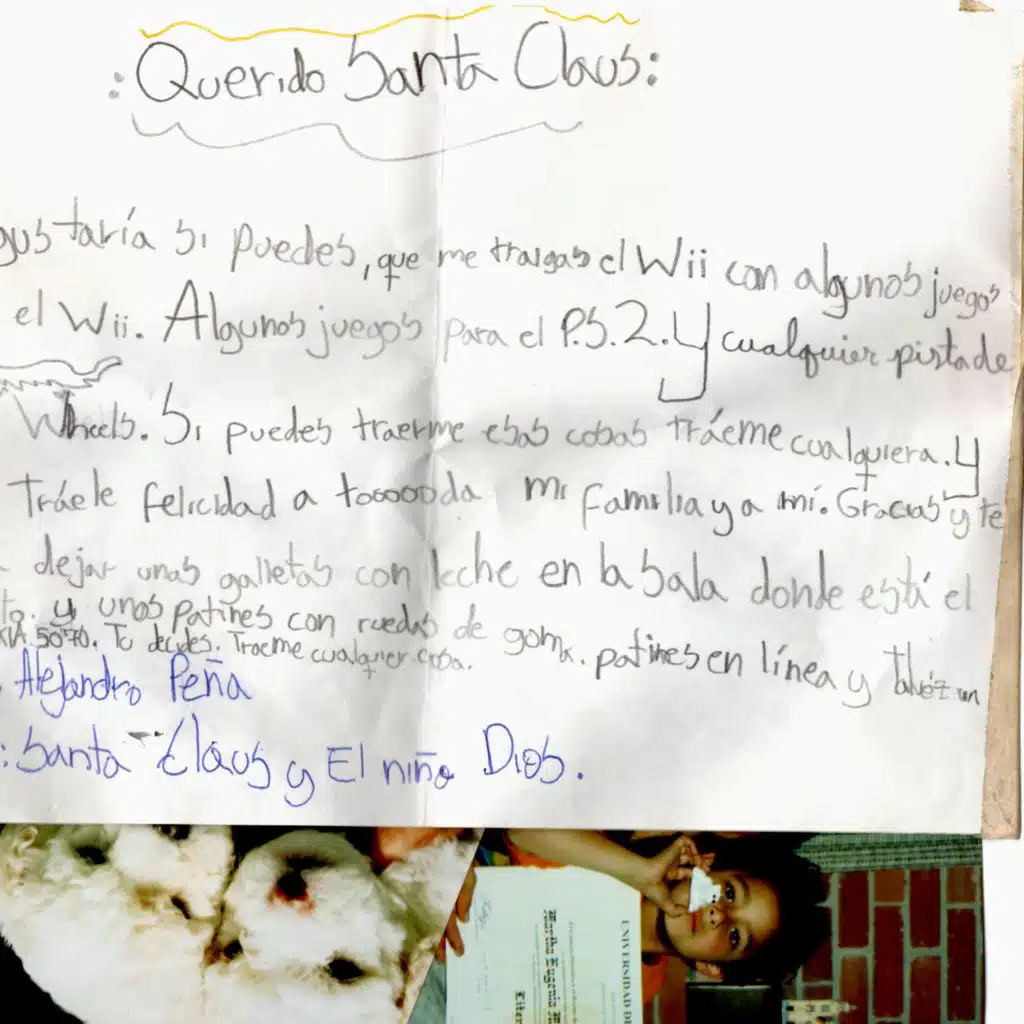 : Querido Santa Claus:
gustaría si puedes, que me traigas el Wii con algunos juegos
el Wii. Algunos juegos para el P.S.2. Y cualquier pista de
Wheels. Si puedes traerme esas cosas tráeme cualquiera. Y
Tráele felicidad a tooooda mi familia y a mí. Gracias y te
dejar unas galletas con leche en la sala donde está el
to. y unos patines con ruedas de goma. patines en línea y talvéz un
KIA 5070. Tu decides. Traeme cualquier cosa.
Alejandro Peña
: Santa Claus y El niño Dios.
UNIVERSIDAD DE